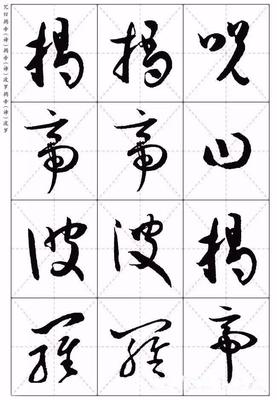 咒曰揭帝
揭帝波羅
揭帝波羅
咒曰揭帝(谛)揭帝(谛)波罗揭帝(谛)波罗